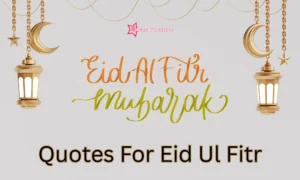 Eid Al Fitr
Mubarak
Quotes For Eid Ul Fitr